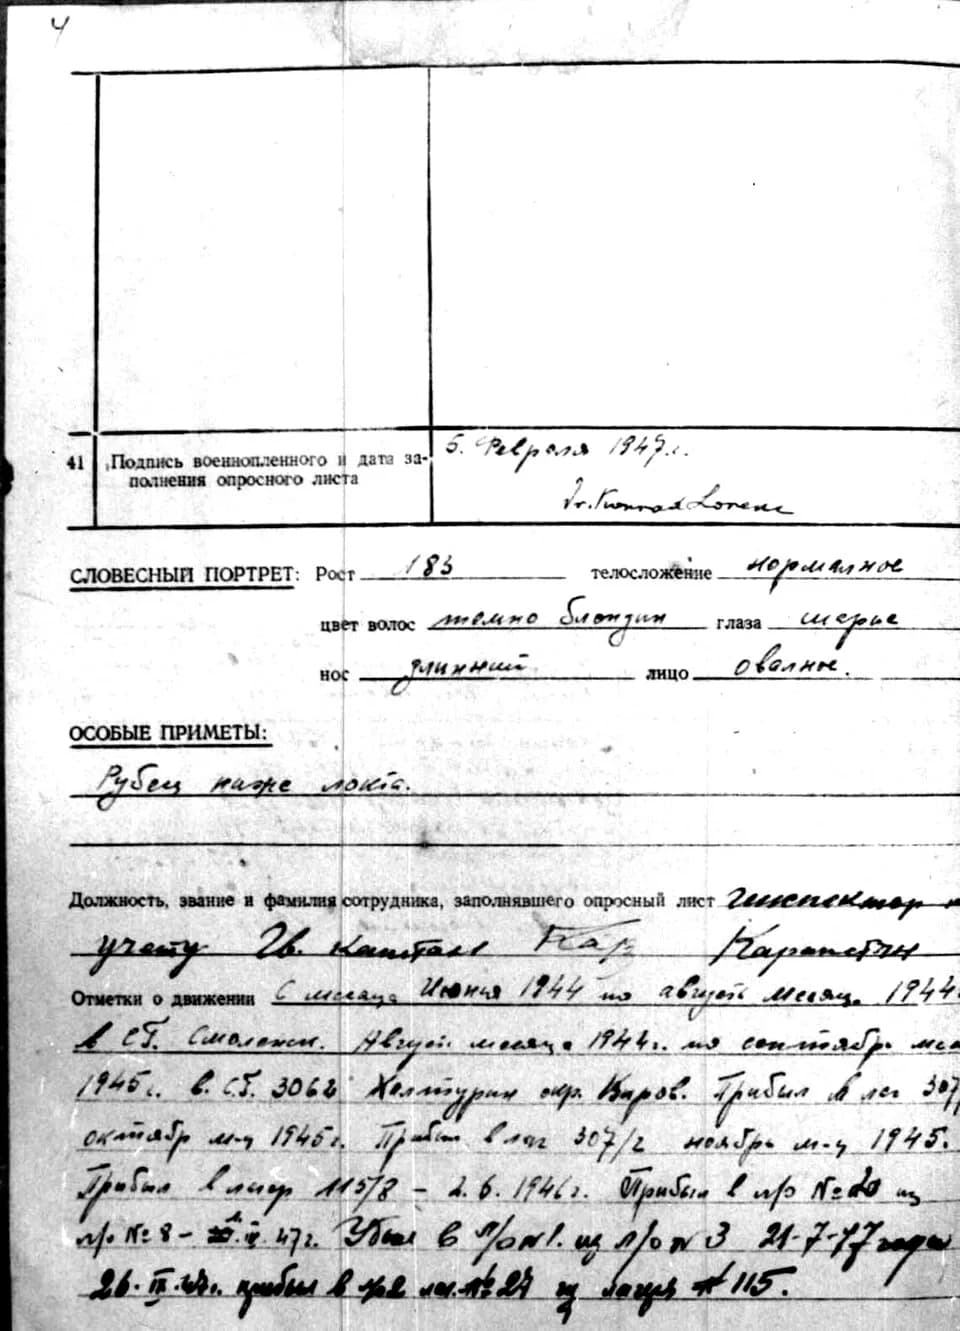 4
41 Подпись военнопленного и дата за-
полнения опросного листа
5. Февраля 1947 г.
Dr. Konrad Lorenz
СЛОВЕСНЫЙ ПОРТРЕТ: Рост 183 телосложение нормалное
цвет волос темно блондин глаза серые
нос длинный лицо овалное.
ОСОБЫЕ ПРИМЕТЫ:
Рубец ниже локтя.
Должность, звание и фамилия сотрудника, заполнявшего опросный лист инспектор
учету Гв. капитан Кар Карапетян
Отметки о движении С месяца Июня 1944 по август месяц 1944
в СГ. Смоленск. Август месяца 1944 г. по сентябрь
1945 г. в. СГ. 3062 Халтурин окр. Киров. Прибыл в лаг 307/
октябр м-ц 1945 г. Прибыл в лаг 307/2 ноябрь м-ц 1945.
Прибыл в лагер 115/8 - 2. 6. 1946 г. Прибыл в л/о № 20 из
л/о № 8 - 47 г. Убыл в л/о №1. из л/о № 3 21-7-47 года
26. IX. 47 г. прибыл в лаг. № 27 из лагеря № 115.